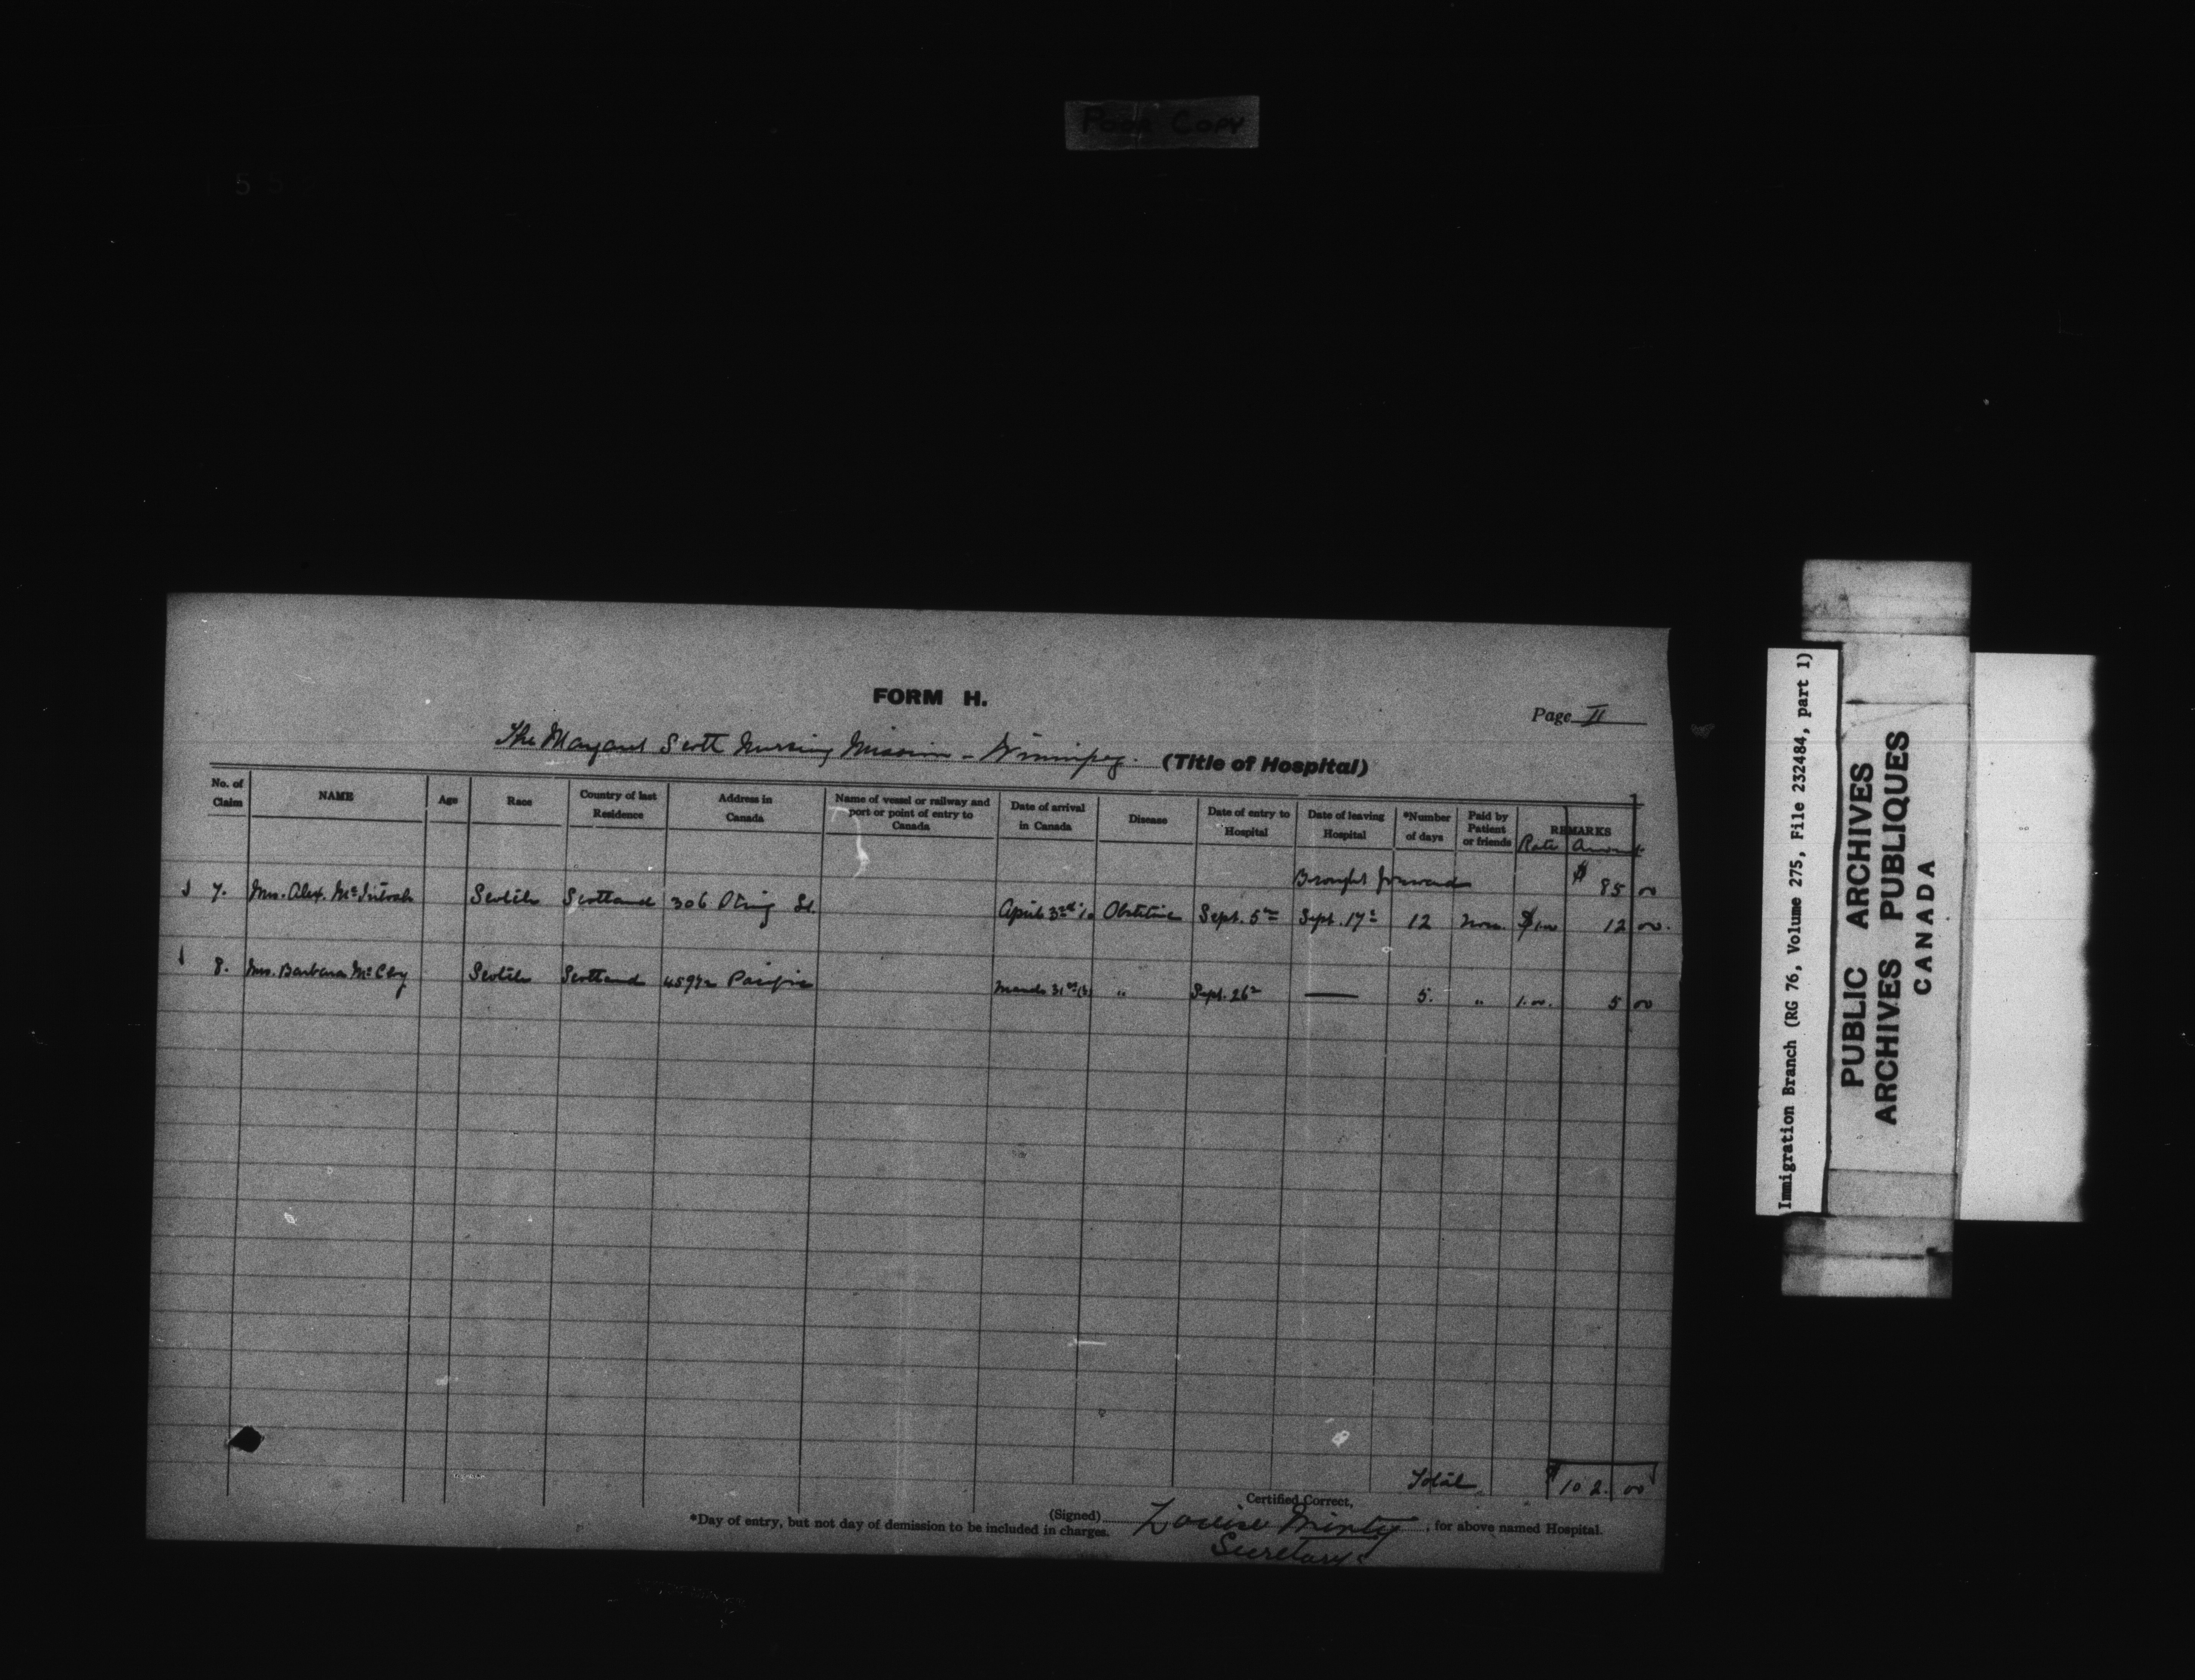 Poor Copy
FORM H.
Page II
The Margaret Scott Nursing Mission - Winnipeg. (Title of Hospital)
No. of Claim NAME Age Race Country of last Residence Address in Canada Name of vessel or railway and port or point of entry to Canada Date of arrival in Canada Disease Date of entry to Hospital Date of leaving Hospital *Number of days Paid by Patient or friends REMARKS
Rate Amount
Brought forward $ 85 00
7. Mrs. Alex. McIntosh Scotch Scotland 306 St. April 3rd '10 Obstetric Sept. 5th Sept. 17th 12 None $1.00 12 00.
8. Mrs. Barbara Scotch Scotland 459 1/2 Pacific March 31st " Sept. 26th — 5. " 1.00. 5 00
Total $102.00
Certified Correct,
(Signed) Louise Minty, for above named Hospital.
*Day of entry, but not day of demission to be included in charges.
Secretary.
Immigration Branch (RG 76, Volume 275, File 232484, part 1)
PUBLIC ARCHIVES
ARCHIVES PUBLIQUES
CANADA